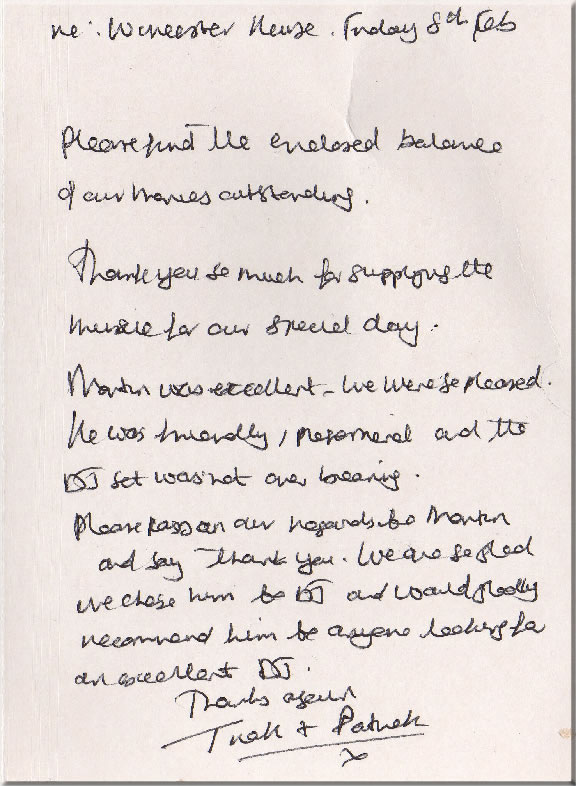 re: Worcester House. Friday 8th Feb
Please find the enclosed balance
of our monies outstanding.
Thank you so much for supplying the
music for our special day.
Martin was excellent - we were so pleased.
He was friendly, and the
DJ set was not over bearing.
Please pass on our regards to Martin
and say Thank you. We are so glad
we chose him to DJ and would gladly
recommend him to anyone looking for
an excellent DJ.
Thanks again
+ Patrick
x